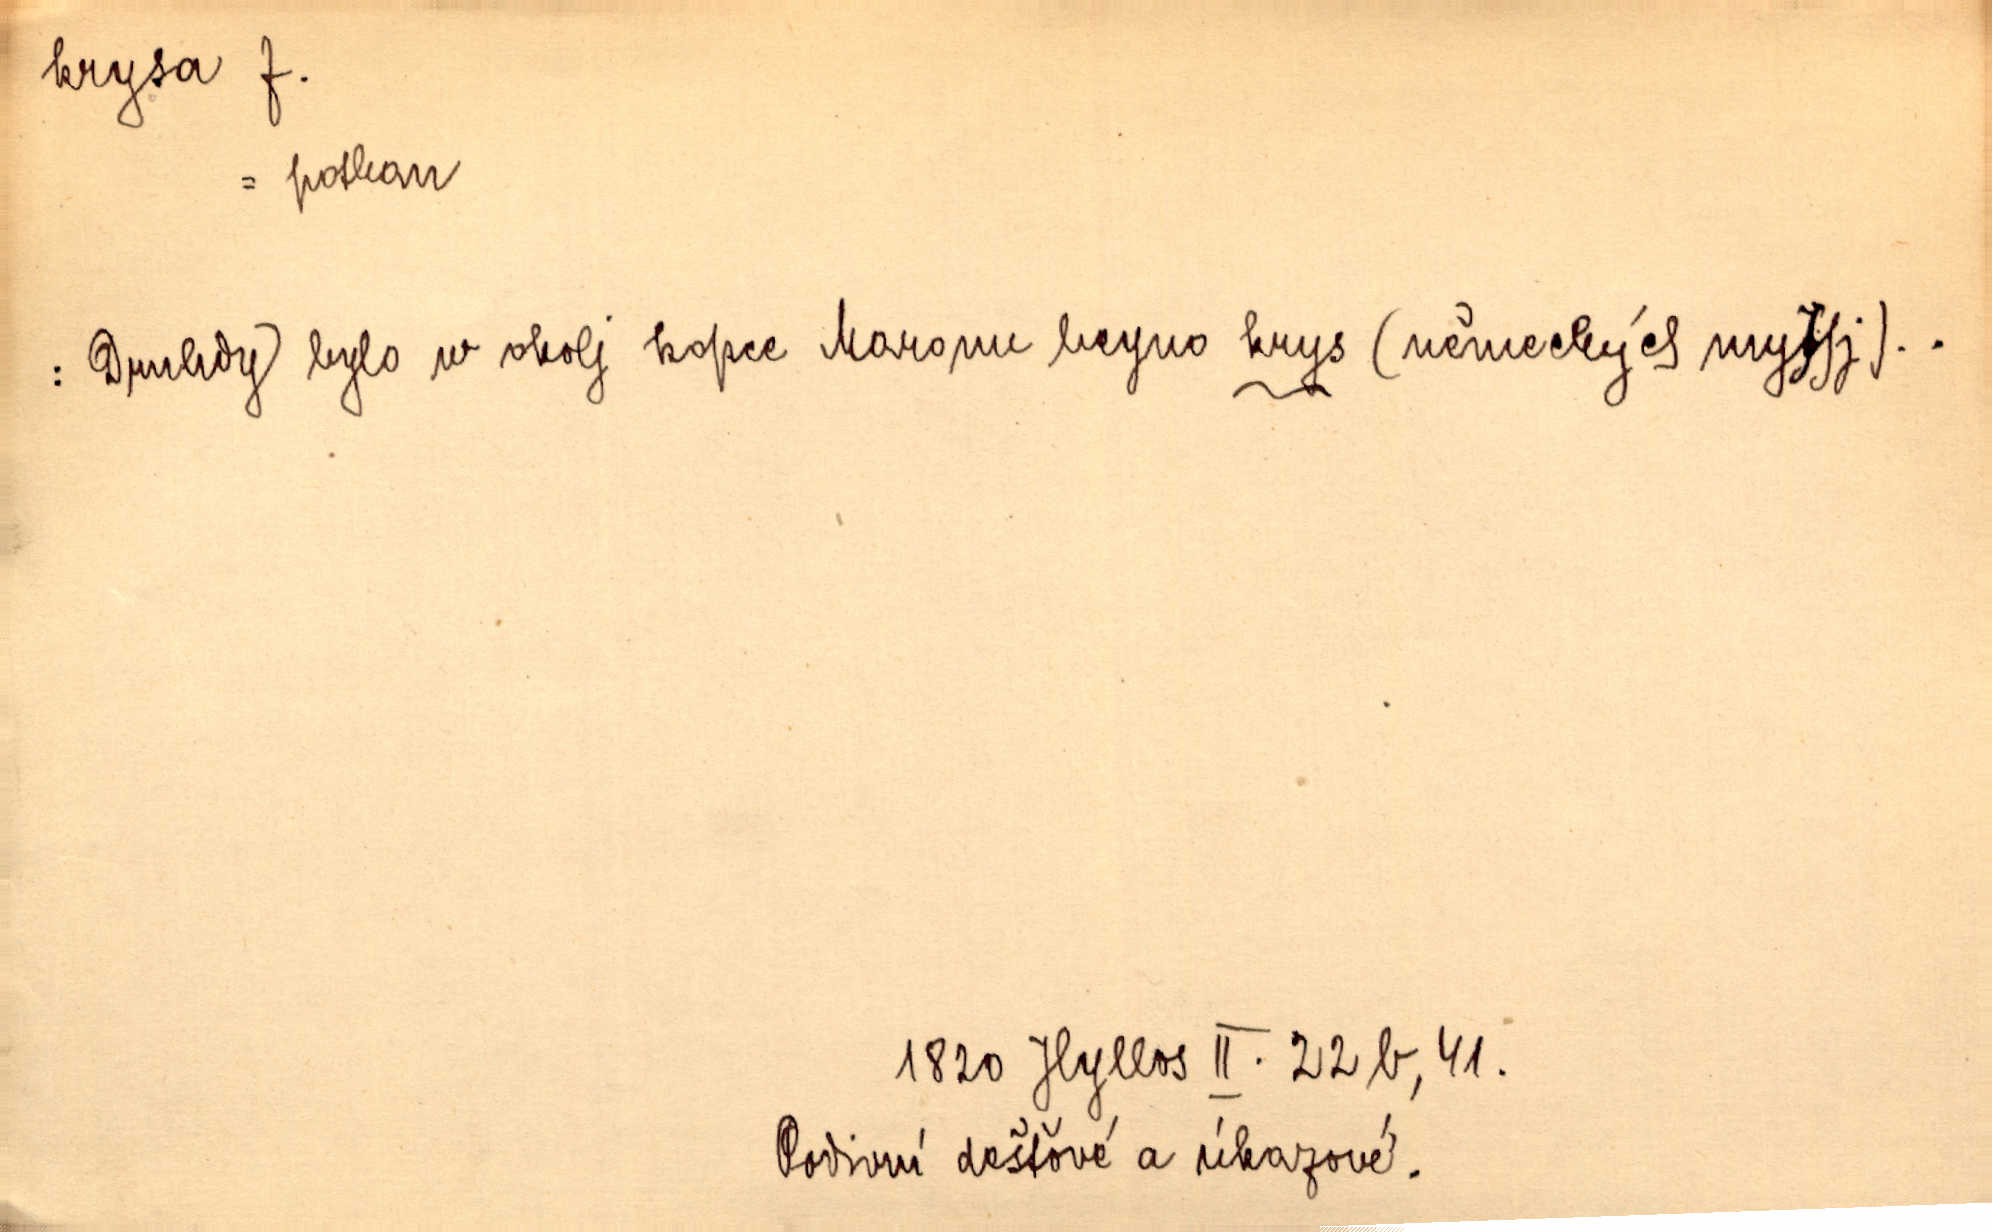 krysa f.
= potkan
: Druhdy bylo w okolj kopce Maromu hegno krys (německých myssj)..
1820 Hyllos II. 22 b, 41.
Podivní dešťové a úkazové.